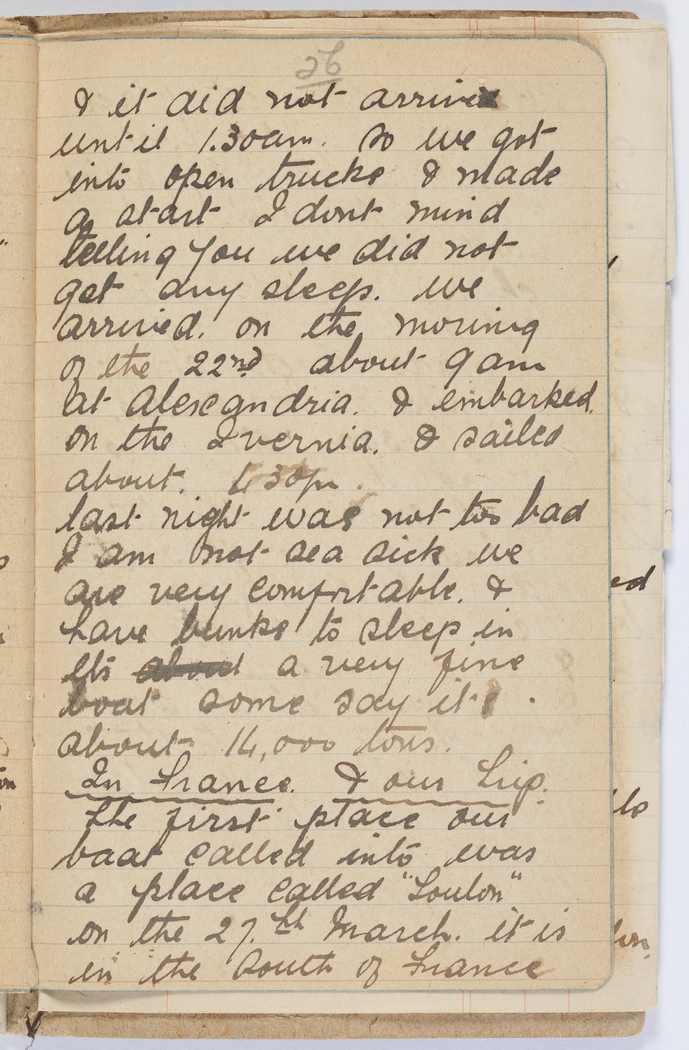 26
& it did not arrive
until 1.30am. so we got
into open trucks & made
a start I dont mind
telling you we did not
get any sleep. we
arrived. on the moring
of the 22nd about 9 am
at Alexandria. & embarked.
on the Ivernia. & sailed
about. 4 30pm.
last night was not too bad
I am not sea sick we
are very comfortable. &
have bunks to sleep in
Its a very fine
boat some say its
about 14,000 tons.
In France. & our trip.
the first place our
boat called into was
a place called "Toulon"
on the 27th March. it is
in the South of France